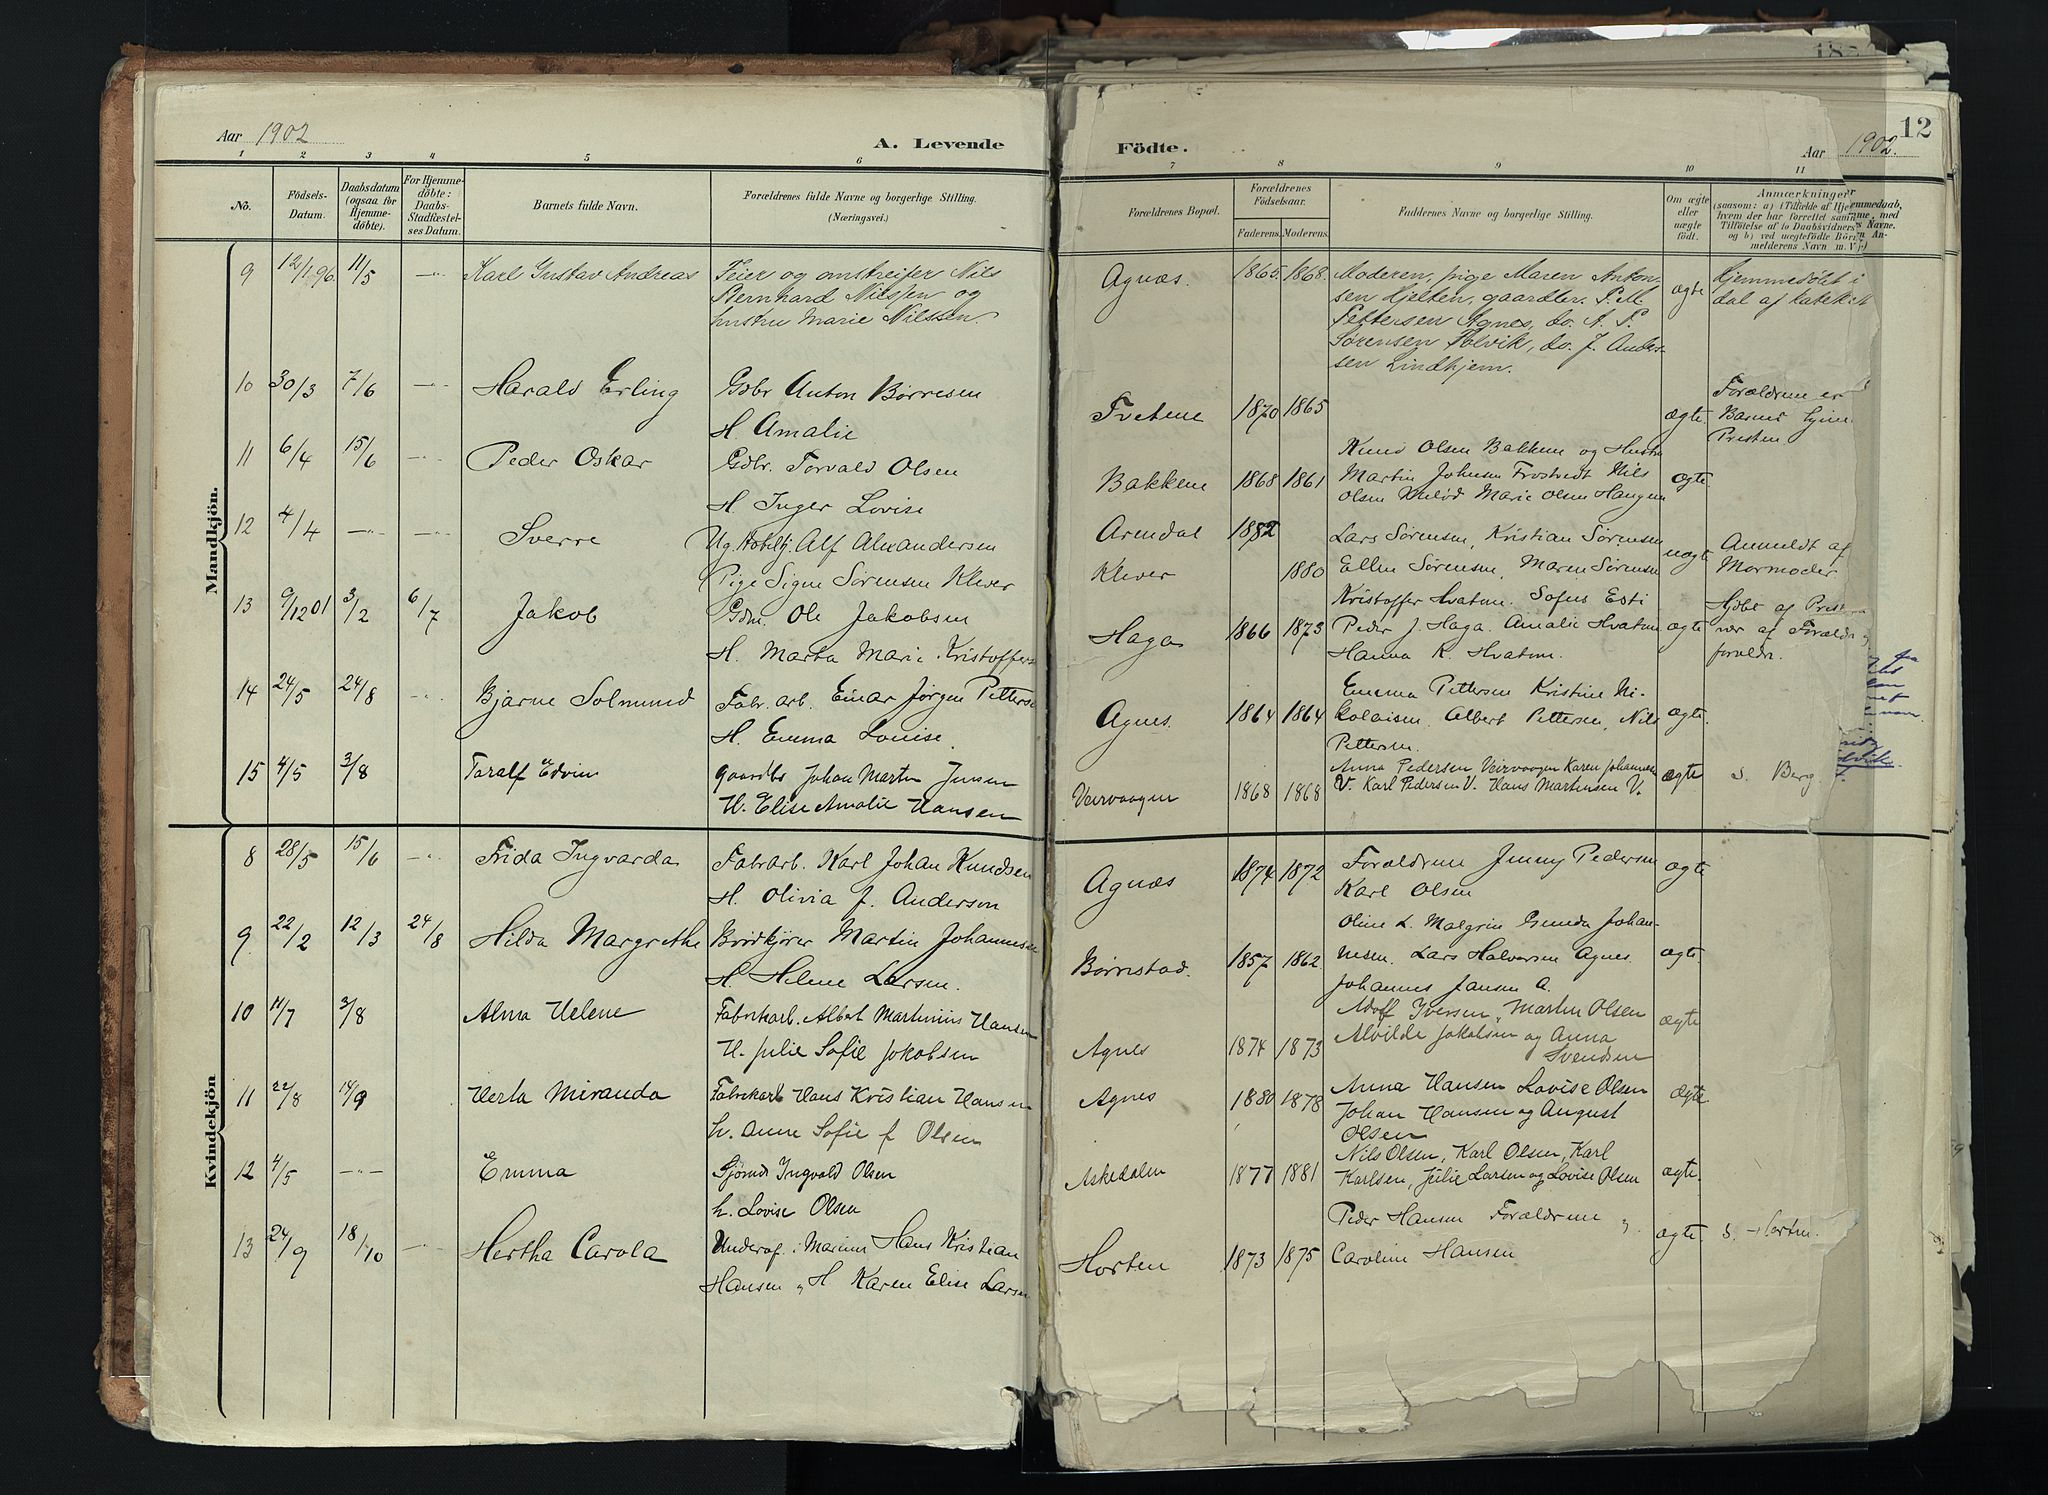 Aar 1902
A. Levende
Födte.
Aar 1902.
12
1 2 3 4 5 6 7 8 9 10 11
No.
Födsels-Datum.
Daabsdatum (ogsaa for Hjemme-döbte).
For Hjemme-döbte: Daabs-Stadfæstel-ses Datum.
Barnets fulde Navn.
Forældrenes fulde Navne og borgerlige Stilling. (Næringsvei.)
Forældrenes Bopæl.
Forældrenes Födselsaar.
Faderens. Moderens.
Faddernes Navne og borgerlige Stilling.
Om ægte eller uægte födt.
Anmærkninger
Mandkjön.
9 12/1 96. 11/5 -"- Karl Gustav Andreas Feier og omstreifer Nils
Bernhard Nilssen og
hustru Marie Nilssen.
Agnæs. 1865. 1868. Moderen, pige Maren Anton-
sen Hjelten, gaardbr. P. M.
Pettersen Agnes, do. A. P.
Sørensen Folvik, do. J. Ander-
sen Lindhjem.
ægte Hjemmedøbt i
dal af
10 30/3 7/6 -"- Harald Erling Gdbr Anton Børresen
H. Amalie
Tvetene 1870 1865 ægte. Forældrene er
Barnet hjem
Presten
11 6/4 15/6 -"- Peder Oskar Gdbr. Torvald Olsen
H Inger Lovise
Bakkene 1868 1861 Knud Olsen Bakkene og Hustru
Martin Johnsen Frostvedt Nils
Olsen Marie Olsen Haugen
ægte.
12 4/4 -"- -"- Sverre Ug. Alf Alexandersen
Pige Signe Sørensen Klever
Arendal 1882
Klever 1880
Lars Sørensen, Kristian Sørensen
Ellen Sørensen, Maren Sørensen
uægte Anmeldt af
Mormoder
13 9/12 01 3/2 6/7 Jakob Gdm. Ole Jakobsen
H. Marta Marie Kristoffers
Haga 1866 1873 Kristoffer Hvatum. Sofus Esti
Peder J. Haga. Amalie Hvatum
Hanna K. Hvatum.
ægte Hjdbt af Prest
nær af Foræld
foreldr.
14 24/5 24/8 -"- Bjarne Solmund Fabr. arb. Einar Jørgen Petters
H. Emma Louise.
Agnes. 1864 1864 Emma Pettersen Kristine Ni-
kolaisen. Albert Pettersen, Nils
Pettersen.
ægte.
15 4/5 3/8 Toralf Edvin gaardbr Johan Martin Jensen
H. Elise Amalie Hansen
Veirvaagen 1868 1868 Anna Pedersen Veirvaagen Karen Johannesen
V. Karl Pedersen V. Hans Martinsen V.
ægte s. Berg.
Kvindekjön
8 28/5 15/6 -"- Frida Ingvarda Fabrarb. Karl Johan Knudsen
H. Olivia f. Anderson
Agnæs 1874 1872 Forældrene Jenny Pedersen
Karl Olsen
ægte
9 22/2 12/3 24/8 Hilda Margrethe Martin Johannesen
H. Helene Larsen.
Børnstad. 1857 1862. Oline L. Malgrin Gunda Johan-
nesen. Lars Halvorsen Agnes.
Johannes Jansen A.
ægte.
10 11/7 3/8 Alma Helene Fabrikarb. Albert Martinius Hansen
H. Julie Sofie Jakobsen
Agnes 1874 1873 Adolf Iversen, Martin Olsen
Alvilde Jakobsen og Anna
Svendsen
ægte
11 22/8 14/9 Herta Miranda Fabrikarb Hans Kristian Hansen
h. Anne Sofie f Olsen
Agnes 1880 1878 Anna Hansen Lovise Olsen
Johan Hansen og August
Olsen
ægte
12 4/5 -"- Emma Sjømd Ingvald Olsen
h. Lovise Olsen
Askedalen 1877 1881 Nils Olsen, Karl Olsen, Karl
Karlsen, Julie Larsen og Lovise Olsen
ægte.
13 24/9 18/10 -"- Hertha Carola Underof. i Marinen Hans Kristian
Hansen og H Karen Elise Larsen
Horten 1873 1875 Peder Hansen Forældrene og
Caroline Hansen
ægte. s. Horten.